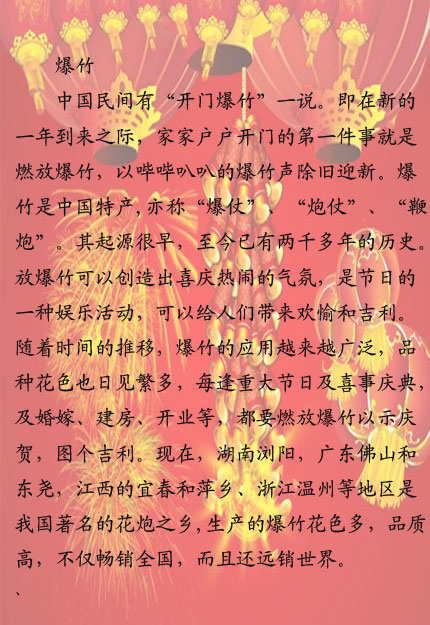 爆竹
中国民间有“开门爆竹”一说。即在新的
一年到来之际，家家户户开门的第一件事就是
燃放爆竹，以哔哔叭叭的爆竹声除旧迎新。爆
竹是中国特产,亦称“爆仗”、“炮仗”、“鞭
炮”。其起源很早，至今已有两千多年的历史。
放爆竹可以创造出喜庆热闹的气氛，是节日的
一种娱乐活动，可以给人们带来欢愉和吉利。
随着时间的推移，爆竹的应用越来越广泛，品
种花色也日见繁多，每逢重大节日及喜事庆典，
及婚嫁、建房、开业等，都要燃放爆竹以示庆
贺，图个吉利。现在，湖南浏阳，广东佛山和
东尧，江西的宜春和萍乡、浙江温州等地区是
我国著名的花炮之乡,生产的爆竹花色多，品质
高，不仅畅销全国，而且还远销世界。
、